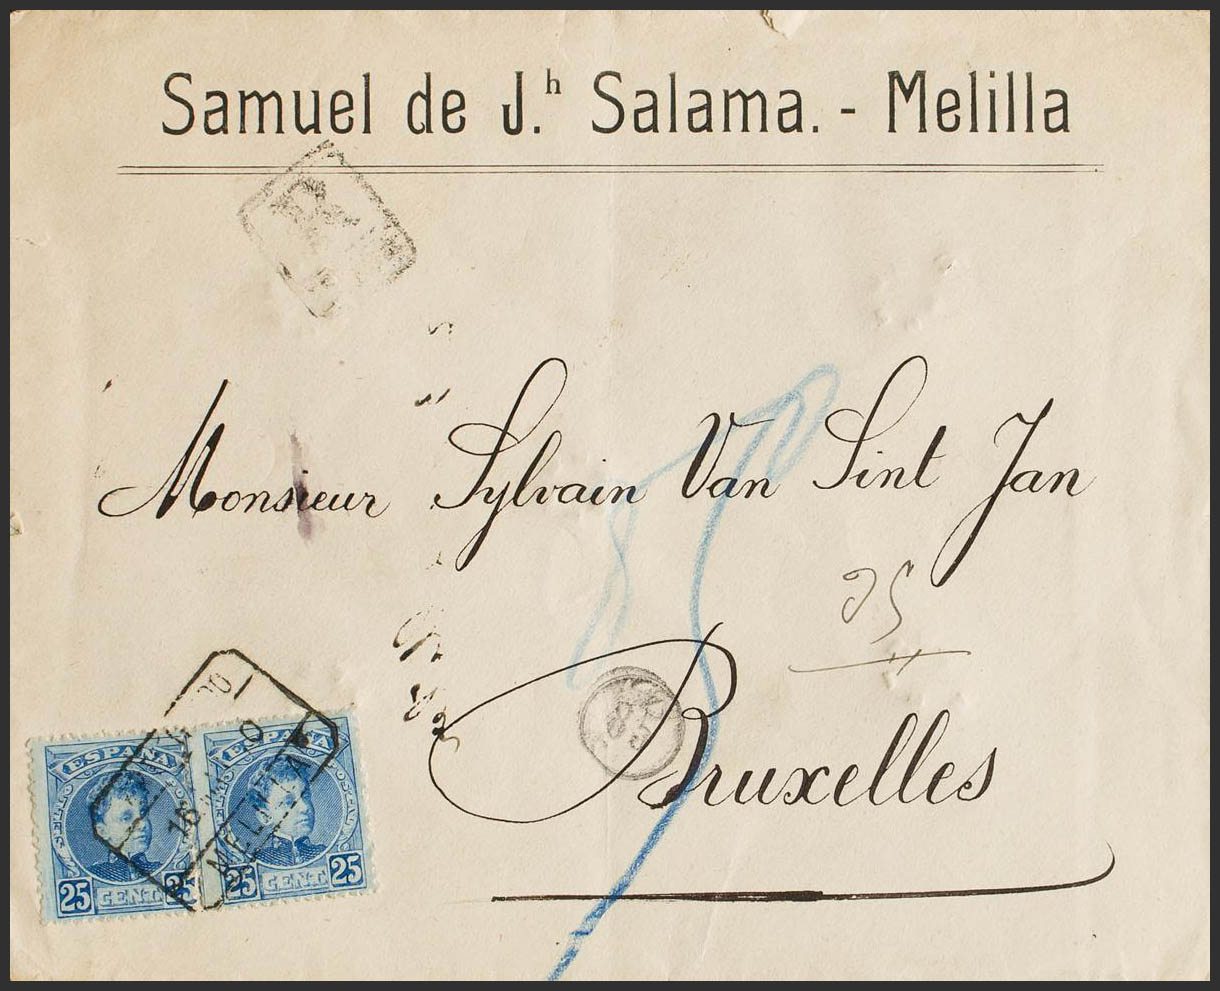 Samuel de J.h Salama. - Melilla
R
Monsieur Sylvain Van Sint Jan
25
Bruxelles
ESPAÑA ESPAÑA
MELILLA
25 CENT. 25 25 CENT. 25